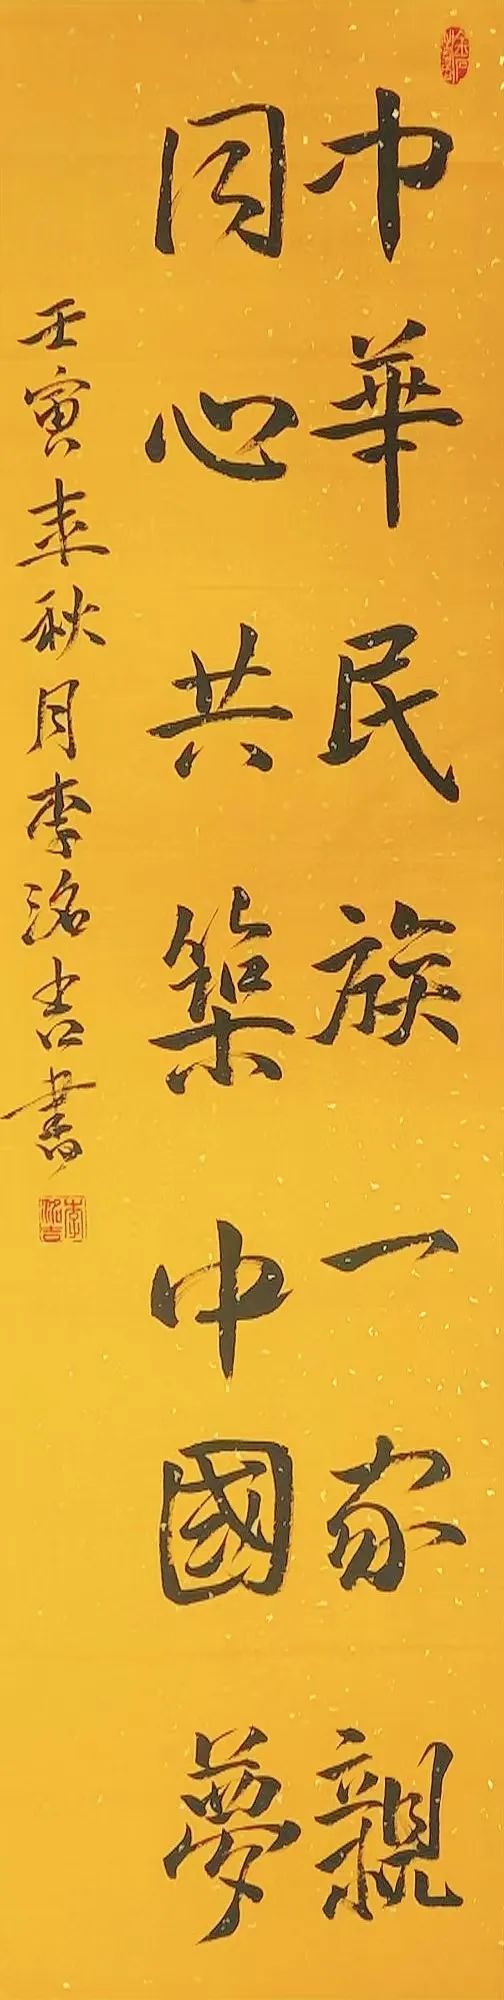 中華民族一家親
同心共築中國夢
壬寅年秋月李洺吉書